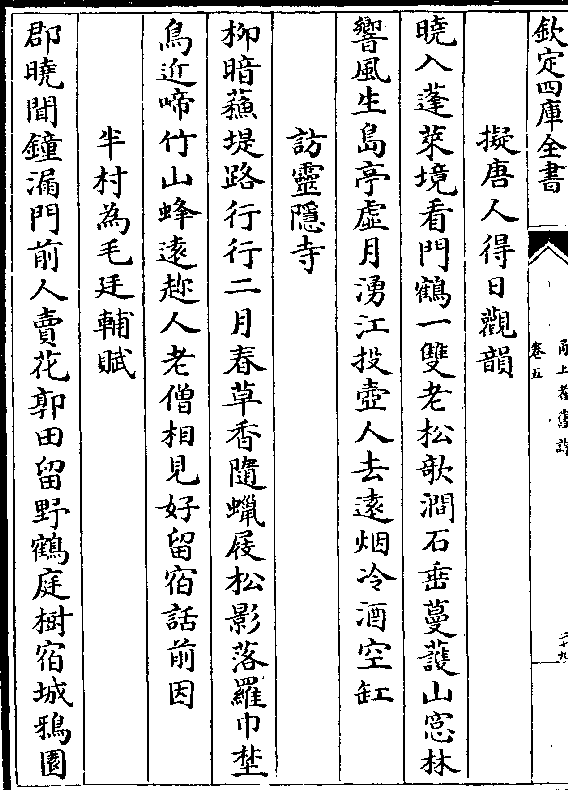 欽定四庫全書
卷五
擬唐人得日觀韻
曉入蓬萊境看門鶴一雙老松欹澗石垂蔓䕶山窓林
響風生島亭虛月湧江投壺人去遠烟冷酒空缸
訪靈隱寺
柳暗蘓堤路行行二月春草香隨蠟屐松影落羅巾埜
鳥近啼竹山蜂遠趂人老僧相見好留宿話前因
半村為毛廷輔賦
郡曉聞鐘漏門前人賣花郭田留野鶴庭樹宿城鴉園